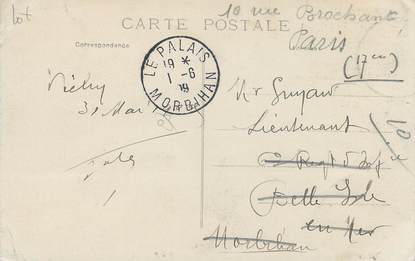 lot
10 rue Brochant
CARTE POSTALE
Paris
(17em)
Correspondance
LE PALAIS
19 *
1 - 6
19
MORBIHAN
Vichy
31 Mai
Mr Guyau
Lieutenant
Regt d'Inf
Belle Isle
en Mer
Morbihan